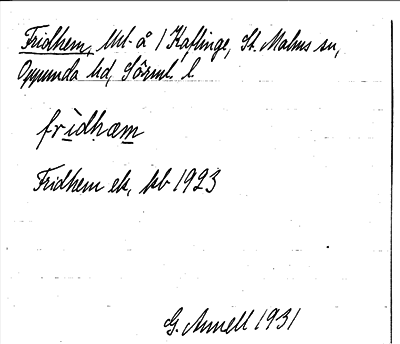 Fridhem, Utl. å / Kaflinge, St. Malms sn,
Oppunda hd, Sörml. l
fridhæm
Fridhem ek, kb 1923
G. Annell 1931